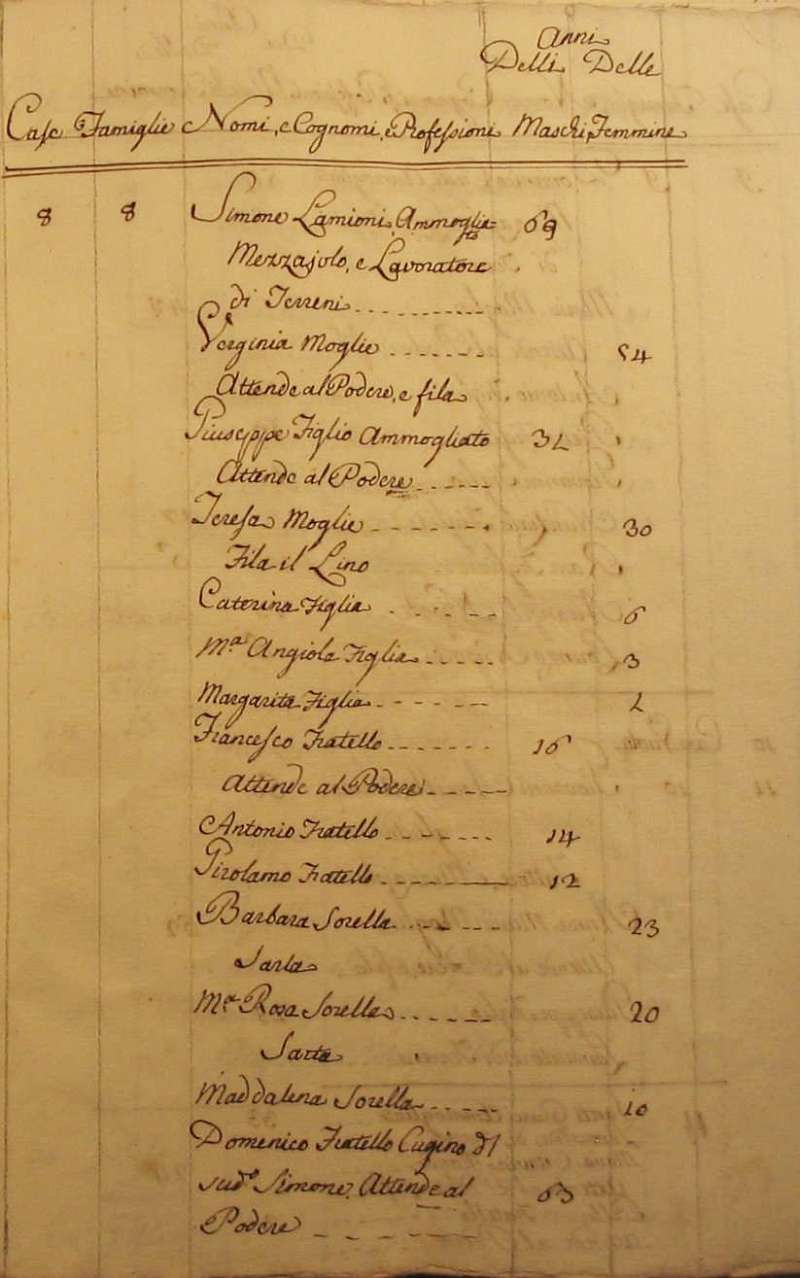 Anni
Delli Delle
Case Famiglie Nomi, e Cognomi, e Professioni Maschi Femmine
8 8 Simone Lamioni, Ammoglia= 69
to
Mezzajolo, e Lavoratore
di Terreni
Verginia Moglie 54
Attende al Podere, e fila
Giuseppe Figlio Ammogliato 32
Attende al Podere
Teresa Moglie 30
Fila il Lino
Caterina Figlia 6
M.a Angiola Figlia 3
Margarita Figlia
Francesco Fratello 16
Attende al Podere
Antonio Fratello 14
Girolamo Fratello 12
Barbara Sorella 23
Sarta
M.a Rosa Sorella 20
Sarta
Maddalena Sorella 10
Domenico Fratello Cugino dl
sud.o Simone, Attende al 63
Podere